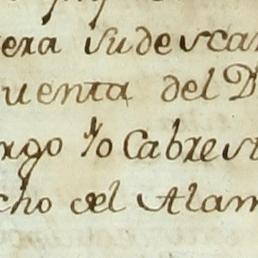 era su descar
uenta del D
rgo y/o Cabrest
cho del Alam